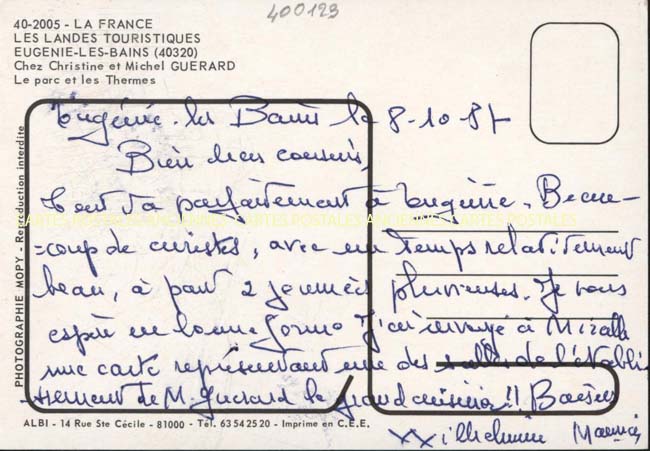 400123
40-2005 - LA FRANCE
LES LANDES TOURISTIQUES
EUGENIE-LES-BAINS (40320)
Chez Christine et Michel GUERARD
Le parc et les Thermes
PHOTOGRAPHIE MOPY - Reproduction interdite
Eugénie-les Bains le 8-10-87
Bien chers cousins,
Tout va parfaitement à Eugénie. Beau-
=coup de curistes, avec un temps relativement
beau, à part 2 journées pluvieuses. Je vous
espère en bonne forme. J'ai envoyé à
une carte représentant une des salles de l'établi-
ssement de M. Guérard le grand cuisinier !! Baisers
CARTES POSTALES ANCIENNES CARTES POSTALES
ALBI - 14 Rue Ste Cécile - 81000 - Tél. 63 54 25 20 - Imprime en C.E.E.